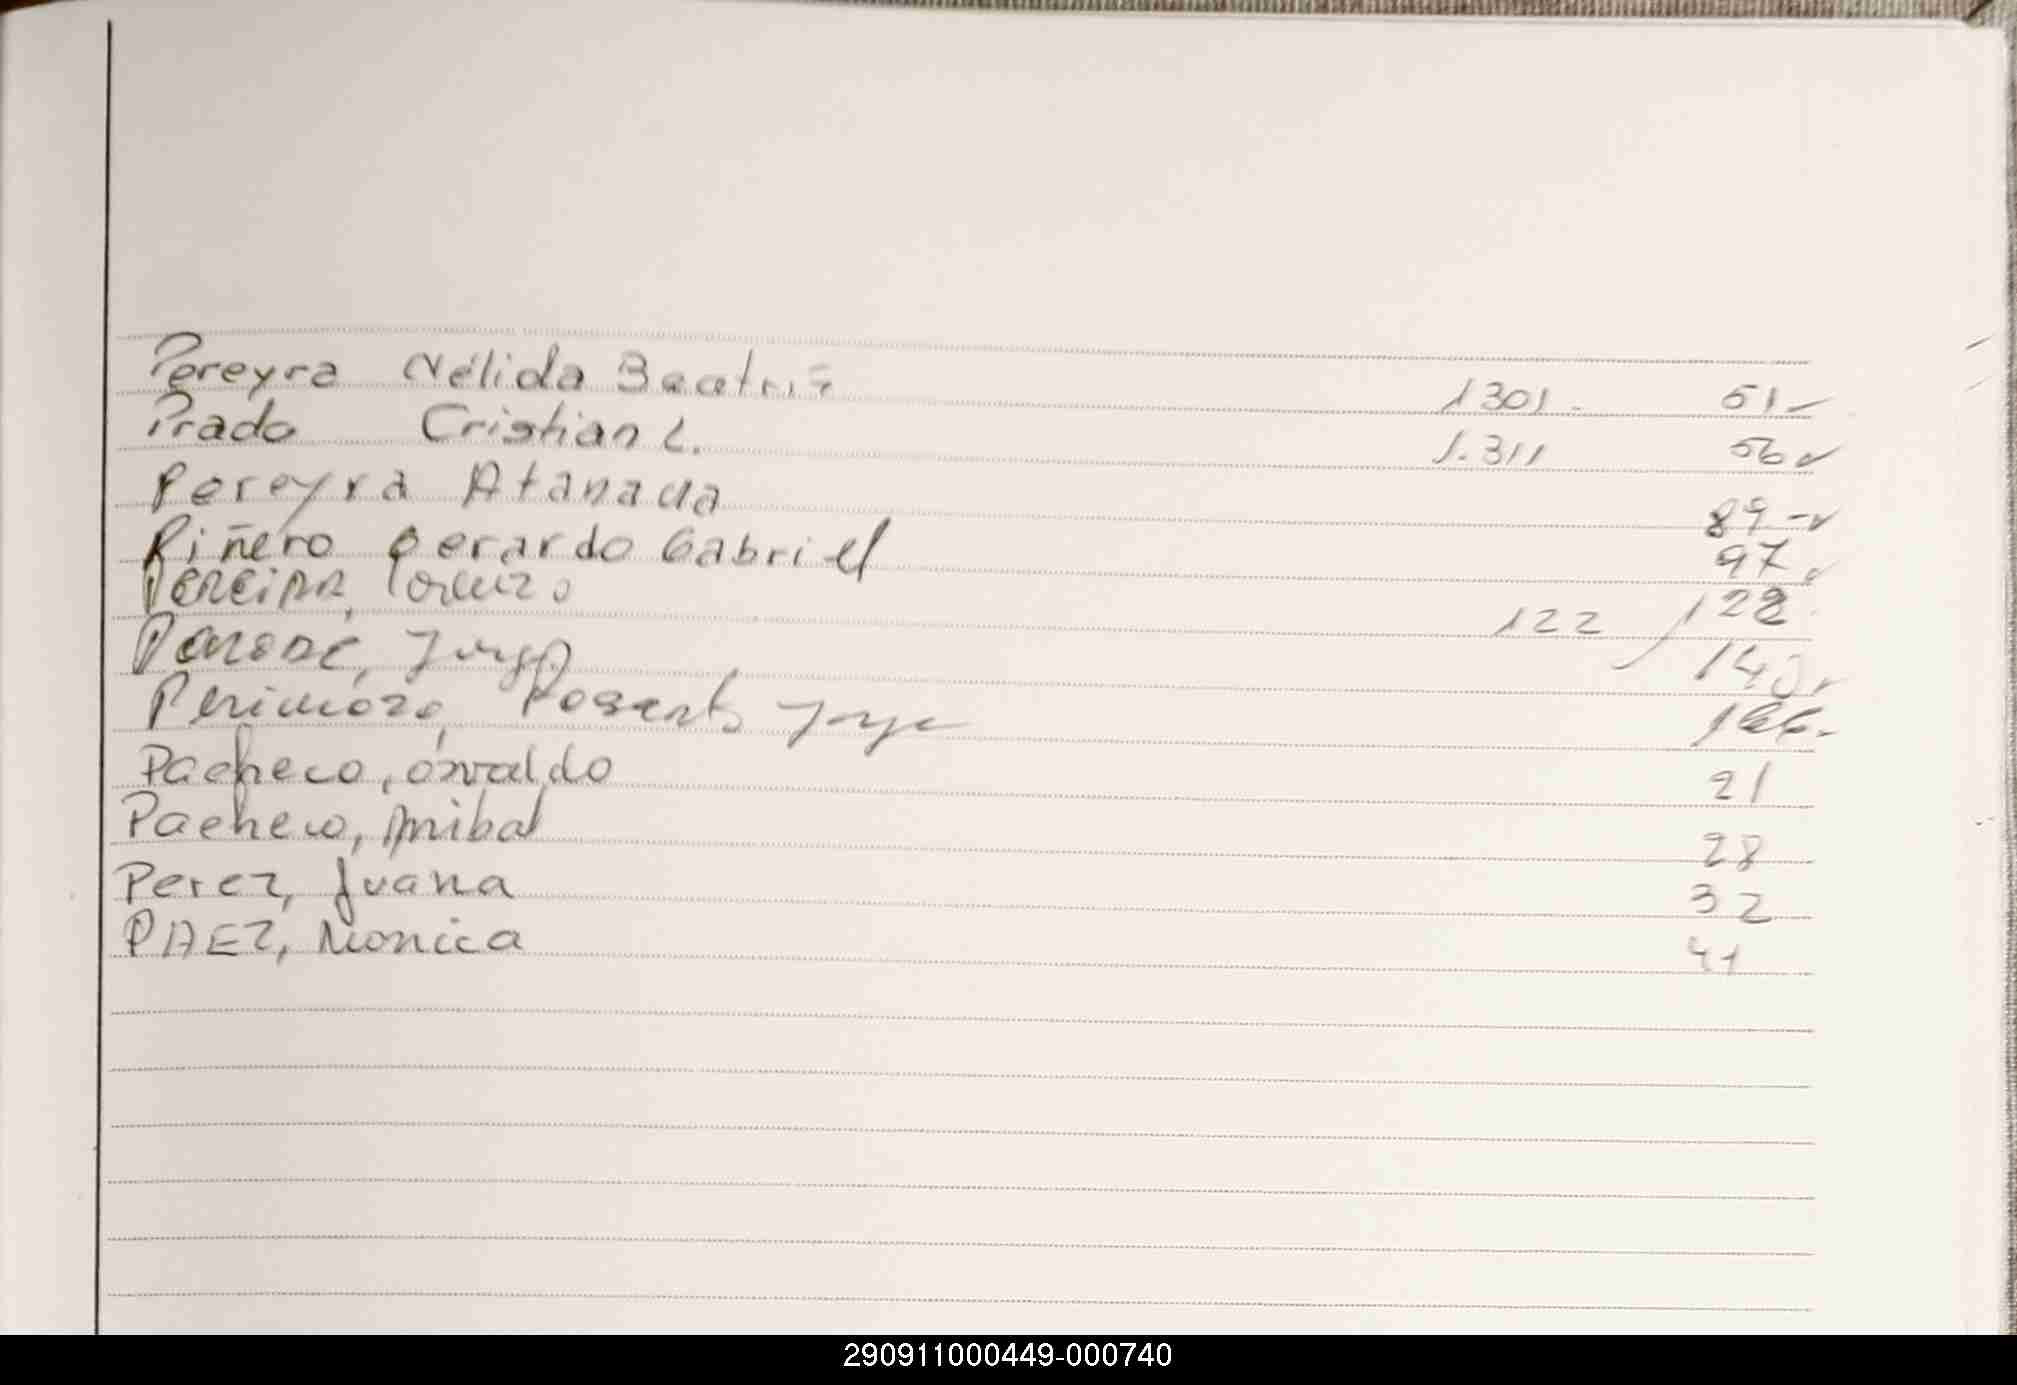 Pereyra Nélida Beatriz 1301. 51
Prado Cristian L. 1.311 56
Pereyra Atanacia 89
Piñero Gerardo Gabriel 97
Pereira, Lorenzo 122 128
Jorge 14
Roberto Jorge
Pacheco, Osvaldo 21
Pacheco, Anibal 28
Perez, Juana 32
PAEZ, Monica 41
290911000449-000740